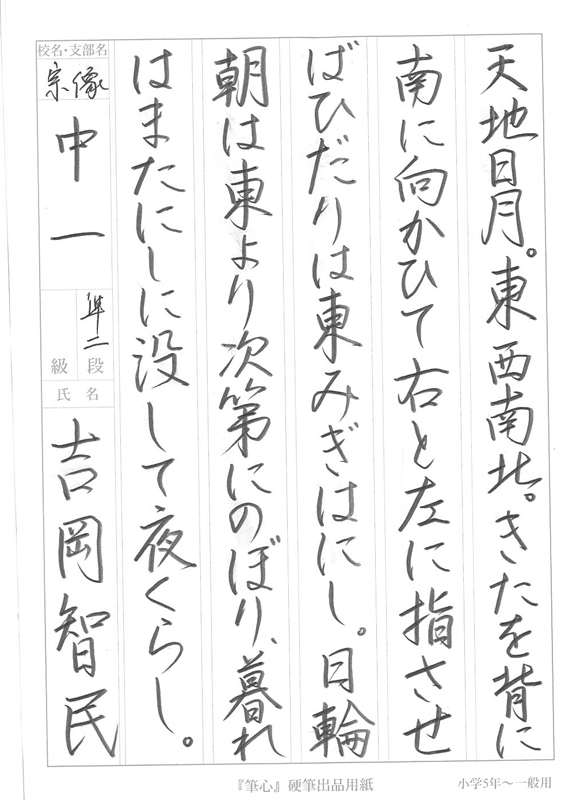 天地日月。東西南北。きたを背に
南に向かひて右と左に指させ
ばひだりは東みぎはにし。日輪
朝は東より次第にのぼり、暮れ
はまたにしに没して夜くらし。
校名・支部名
宗像
中一
準二
段
級
氏名
吉岡智民
『筆心』硬筆出品用紙
小学5年〜一般用